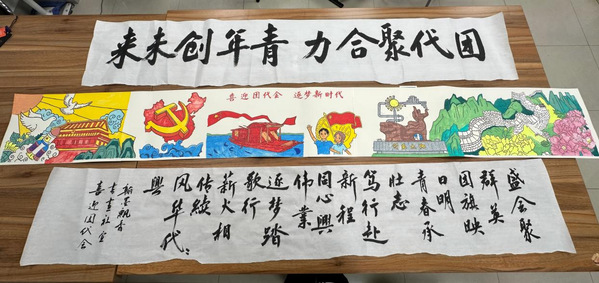 团代聚合力 青年创未来
喜迎团代会 追梦新时代
盛会聚
群英
团旗映
日明
青春承
壮志
笃行赴
新程
同心興
伟业
追梦踏
歌行
薪火相
传续
风华代々
興
翰墨飘香
书画社
喜迎团代会